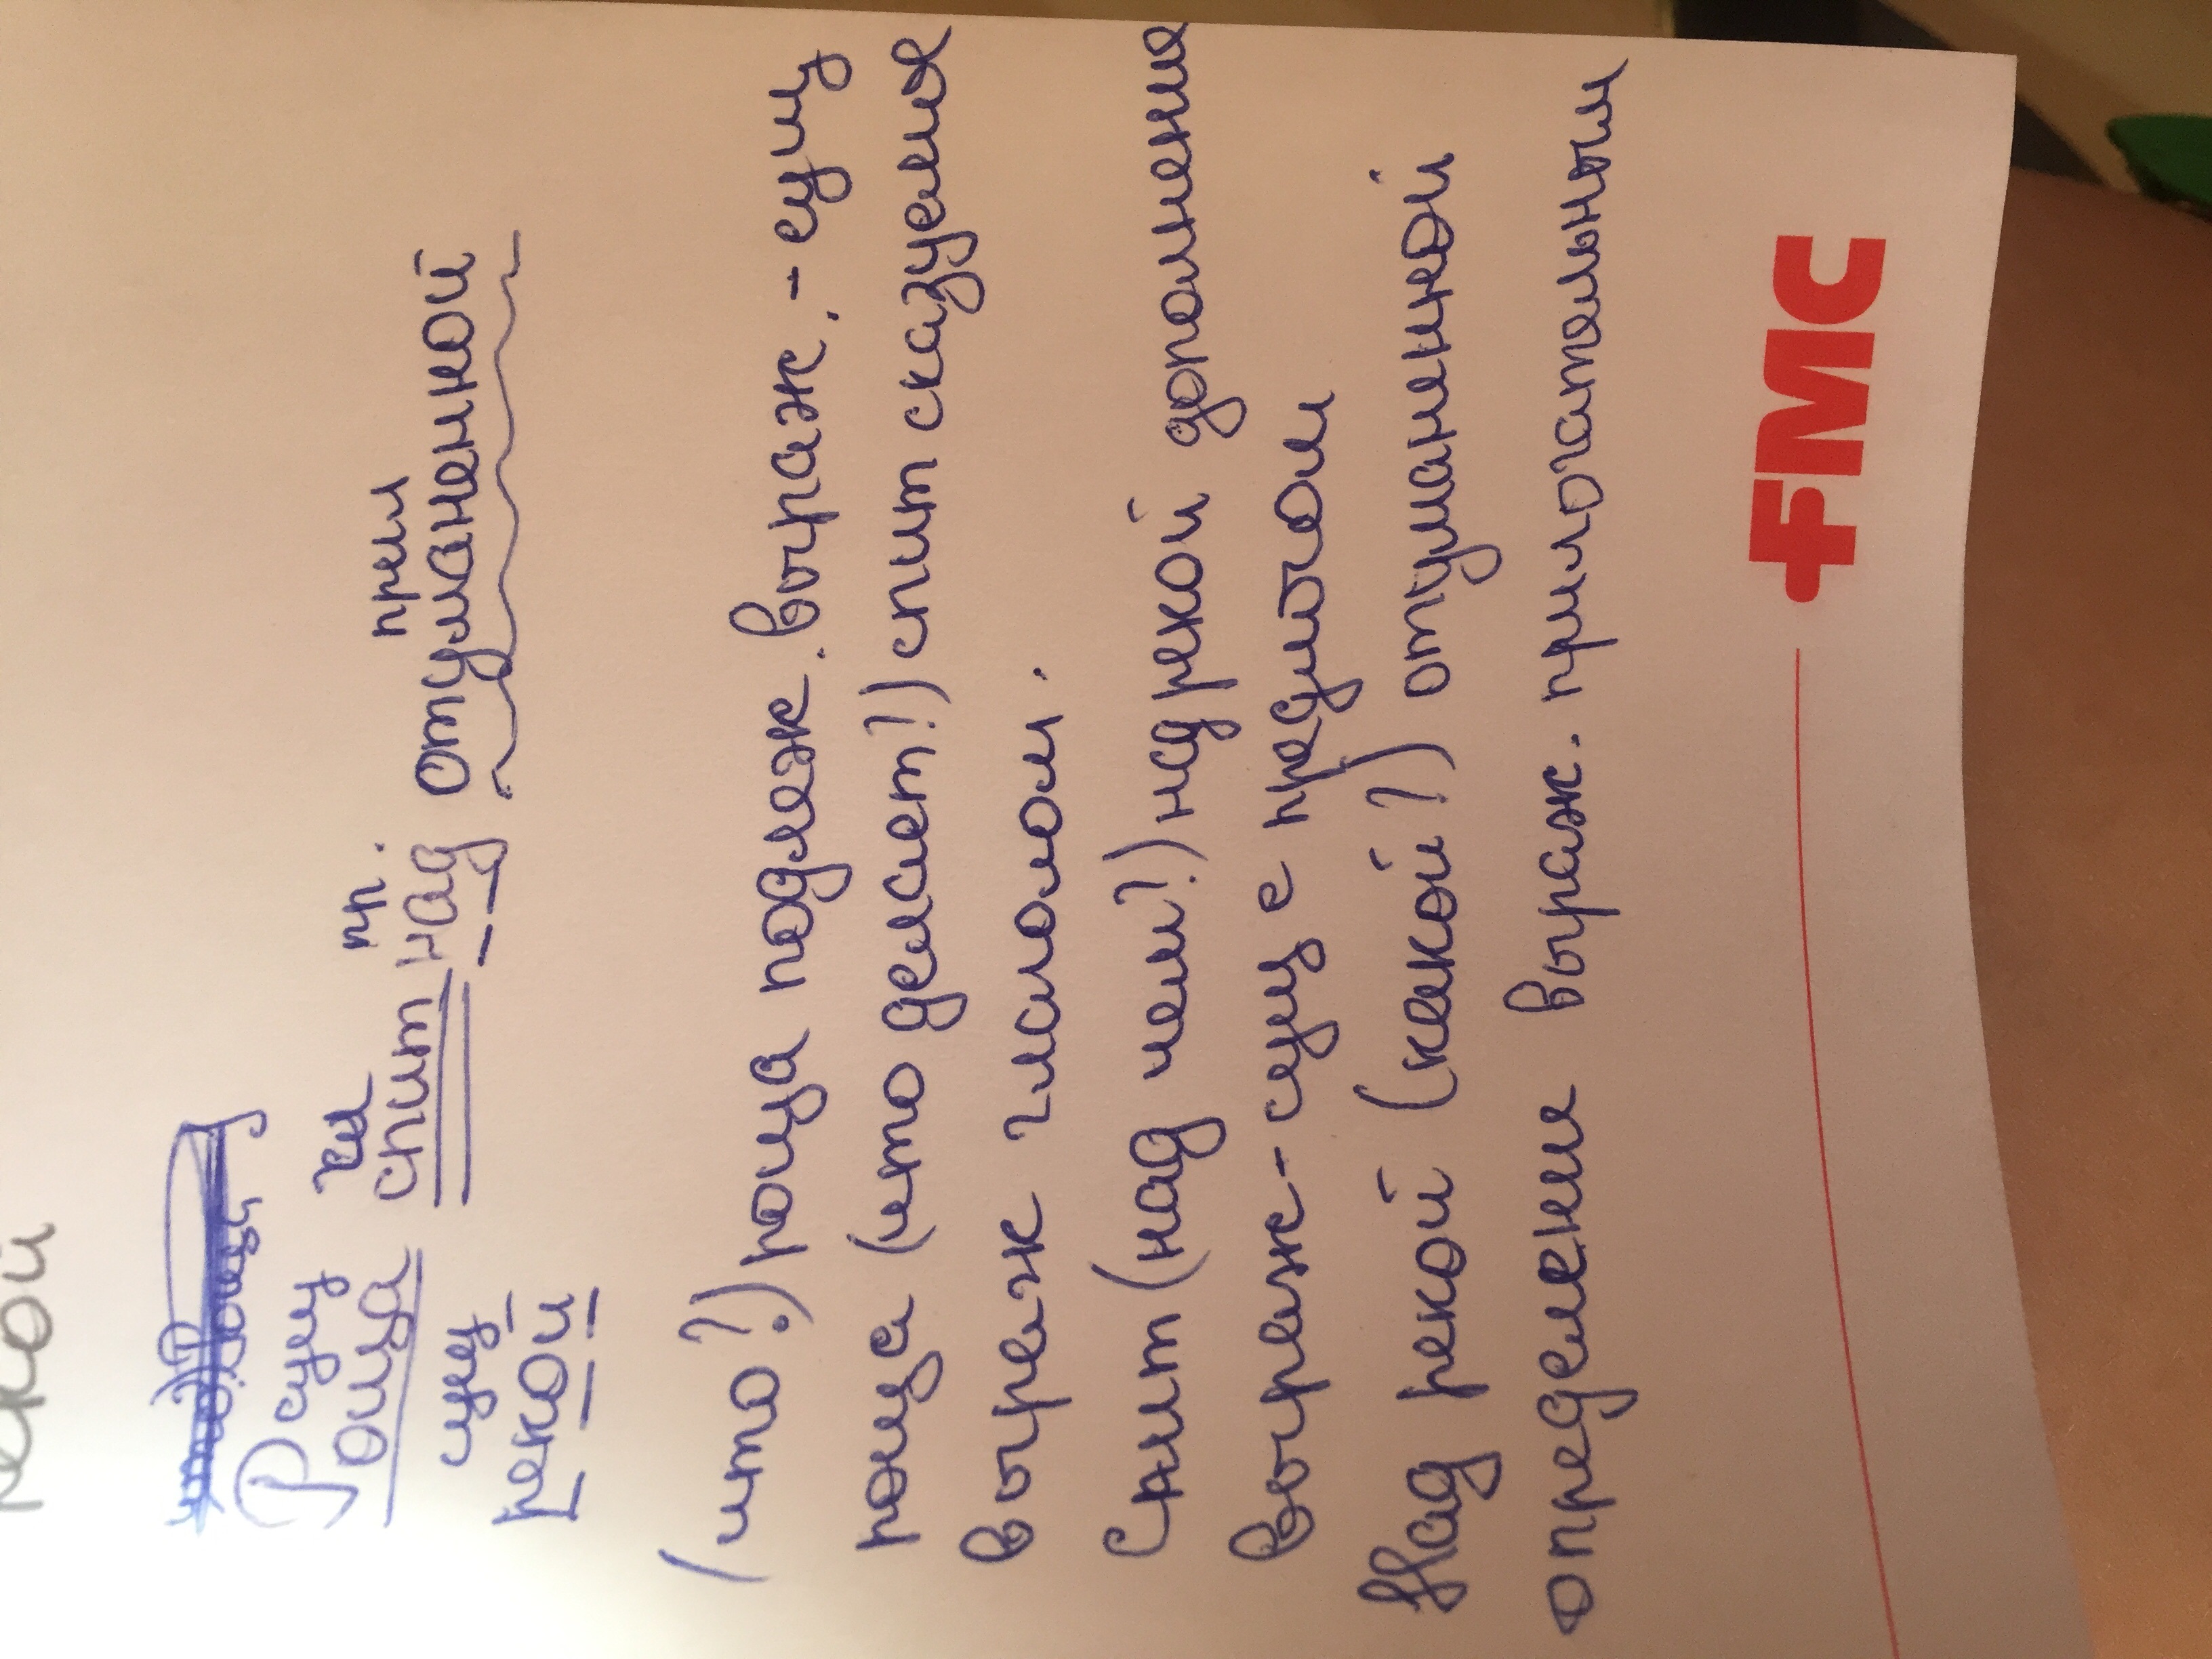 рекой
сущ гл пр. прил
Роща спит над отуманенной
сущ
рекой
(что?) роща подлеж. выраж. - сущ
роща (что делает?) спит сказуемое
выраж глаголом.
Спит (над чем?) над рекой дополнение
выраж - сущ с предлогом
Над рекой (какой?) отуманенной
определение выраж. прилогательным
FMC